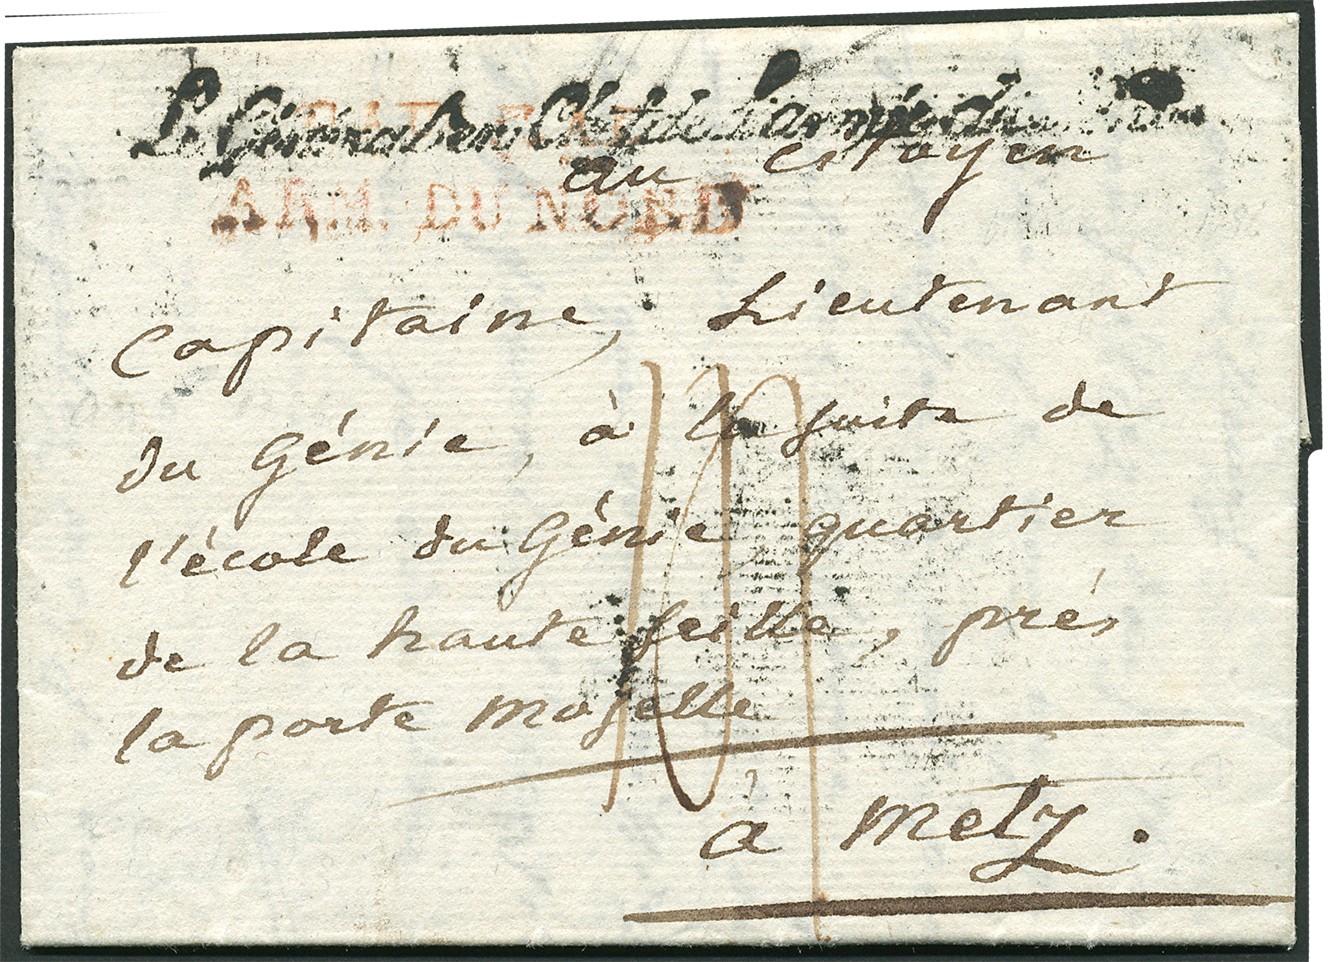 Le Général en Chef de L'armée du
au citoyen
ARM. DU NORD
capitaine, Lieutenant
du Génie, à la suite de
l'école du Génie, quartier
de la haute seille, prés
la porte moselle
à metz.